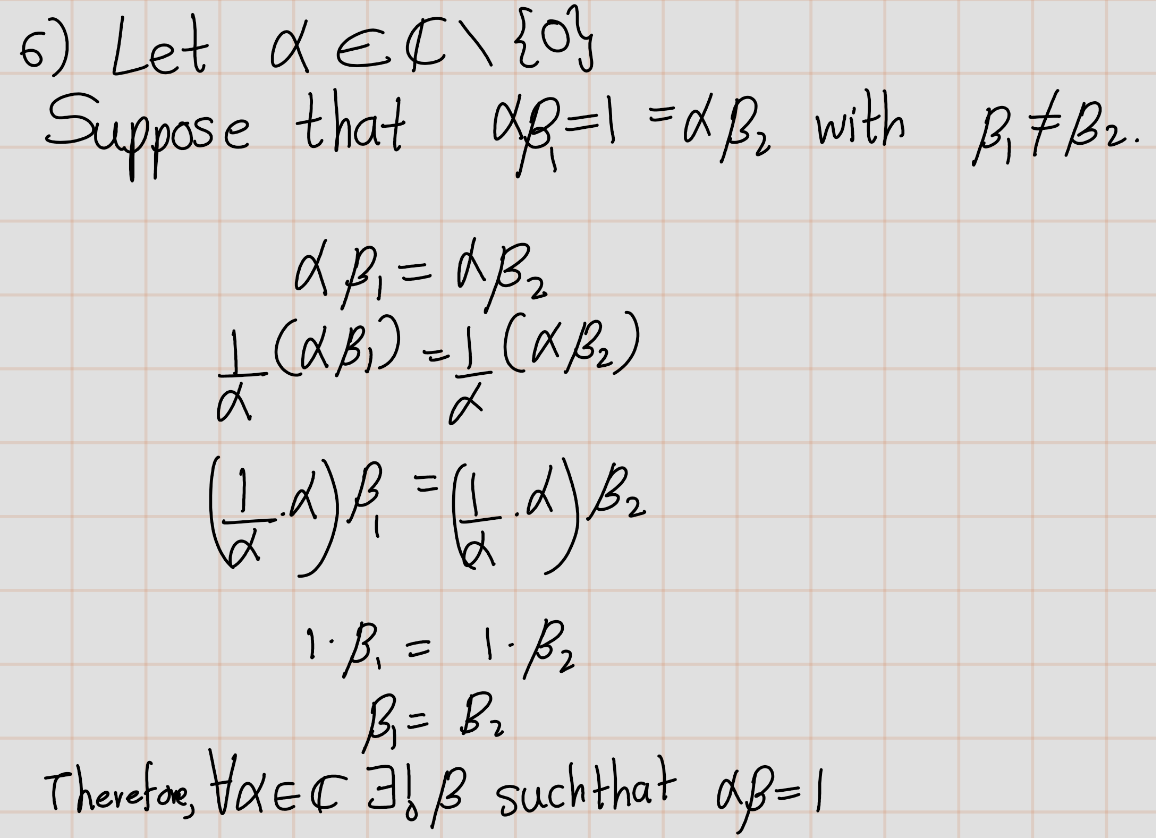 6) Let α ∈ ℂ \ {0}
Suppose that αβ₁ = 1 = αβ₂ with β₁ ≠ β₂.
αβ₁ = αβ₂
1/α (αβ₁) = 1/α (αβ₂)
(1/α · α) β₁ = (1/α · α) β₂
1 · β₁ = 1 · β₂
β₁ = β₂
Therefore, ∀α ∈ ℂ ∃! β such that αβ = 1